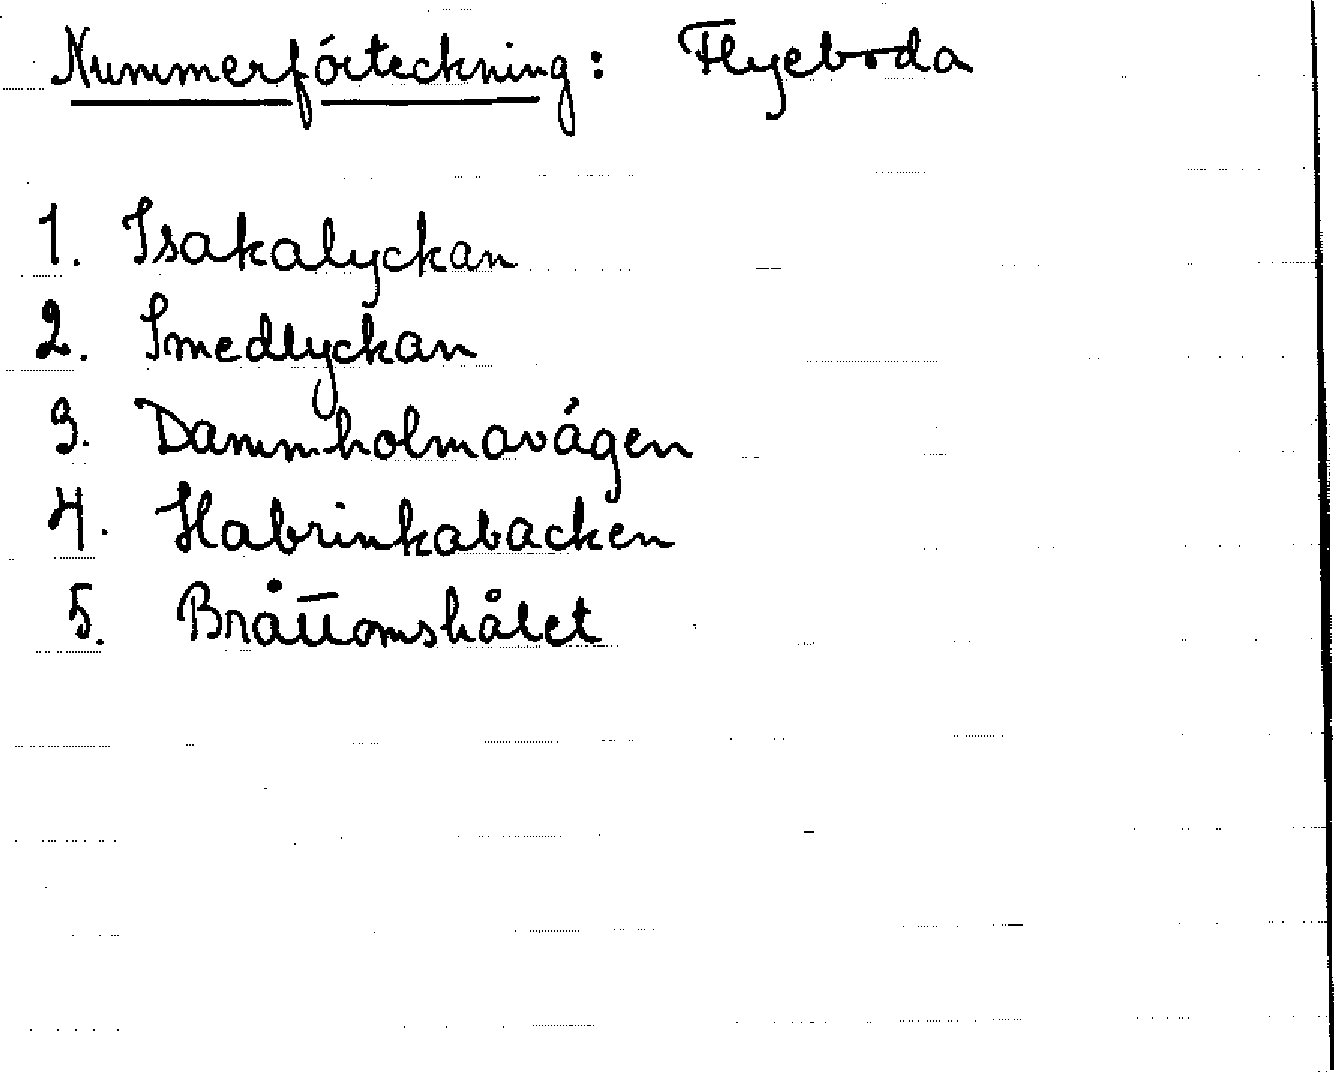 Nummerförteckning: Flyeboda
1. Isakalyckan
2. Smedlyckan
3. Dammholmavägen
4. Habrinkabacken
5. Bråttomshålet